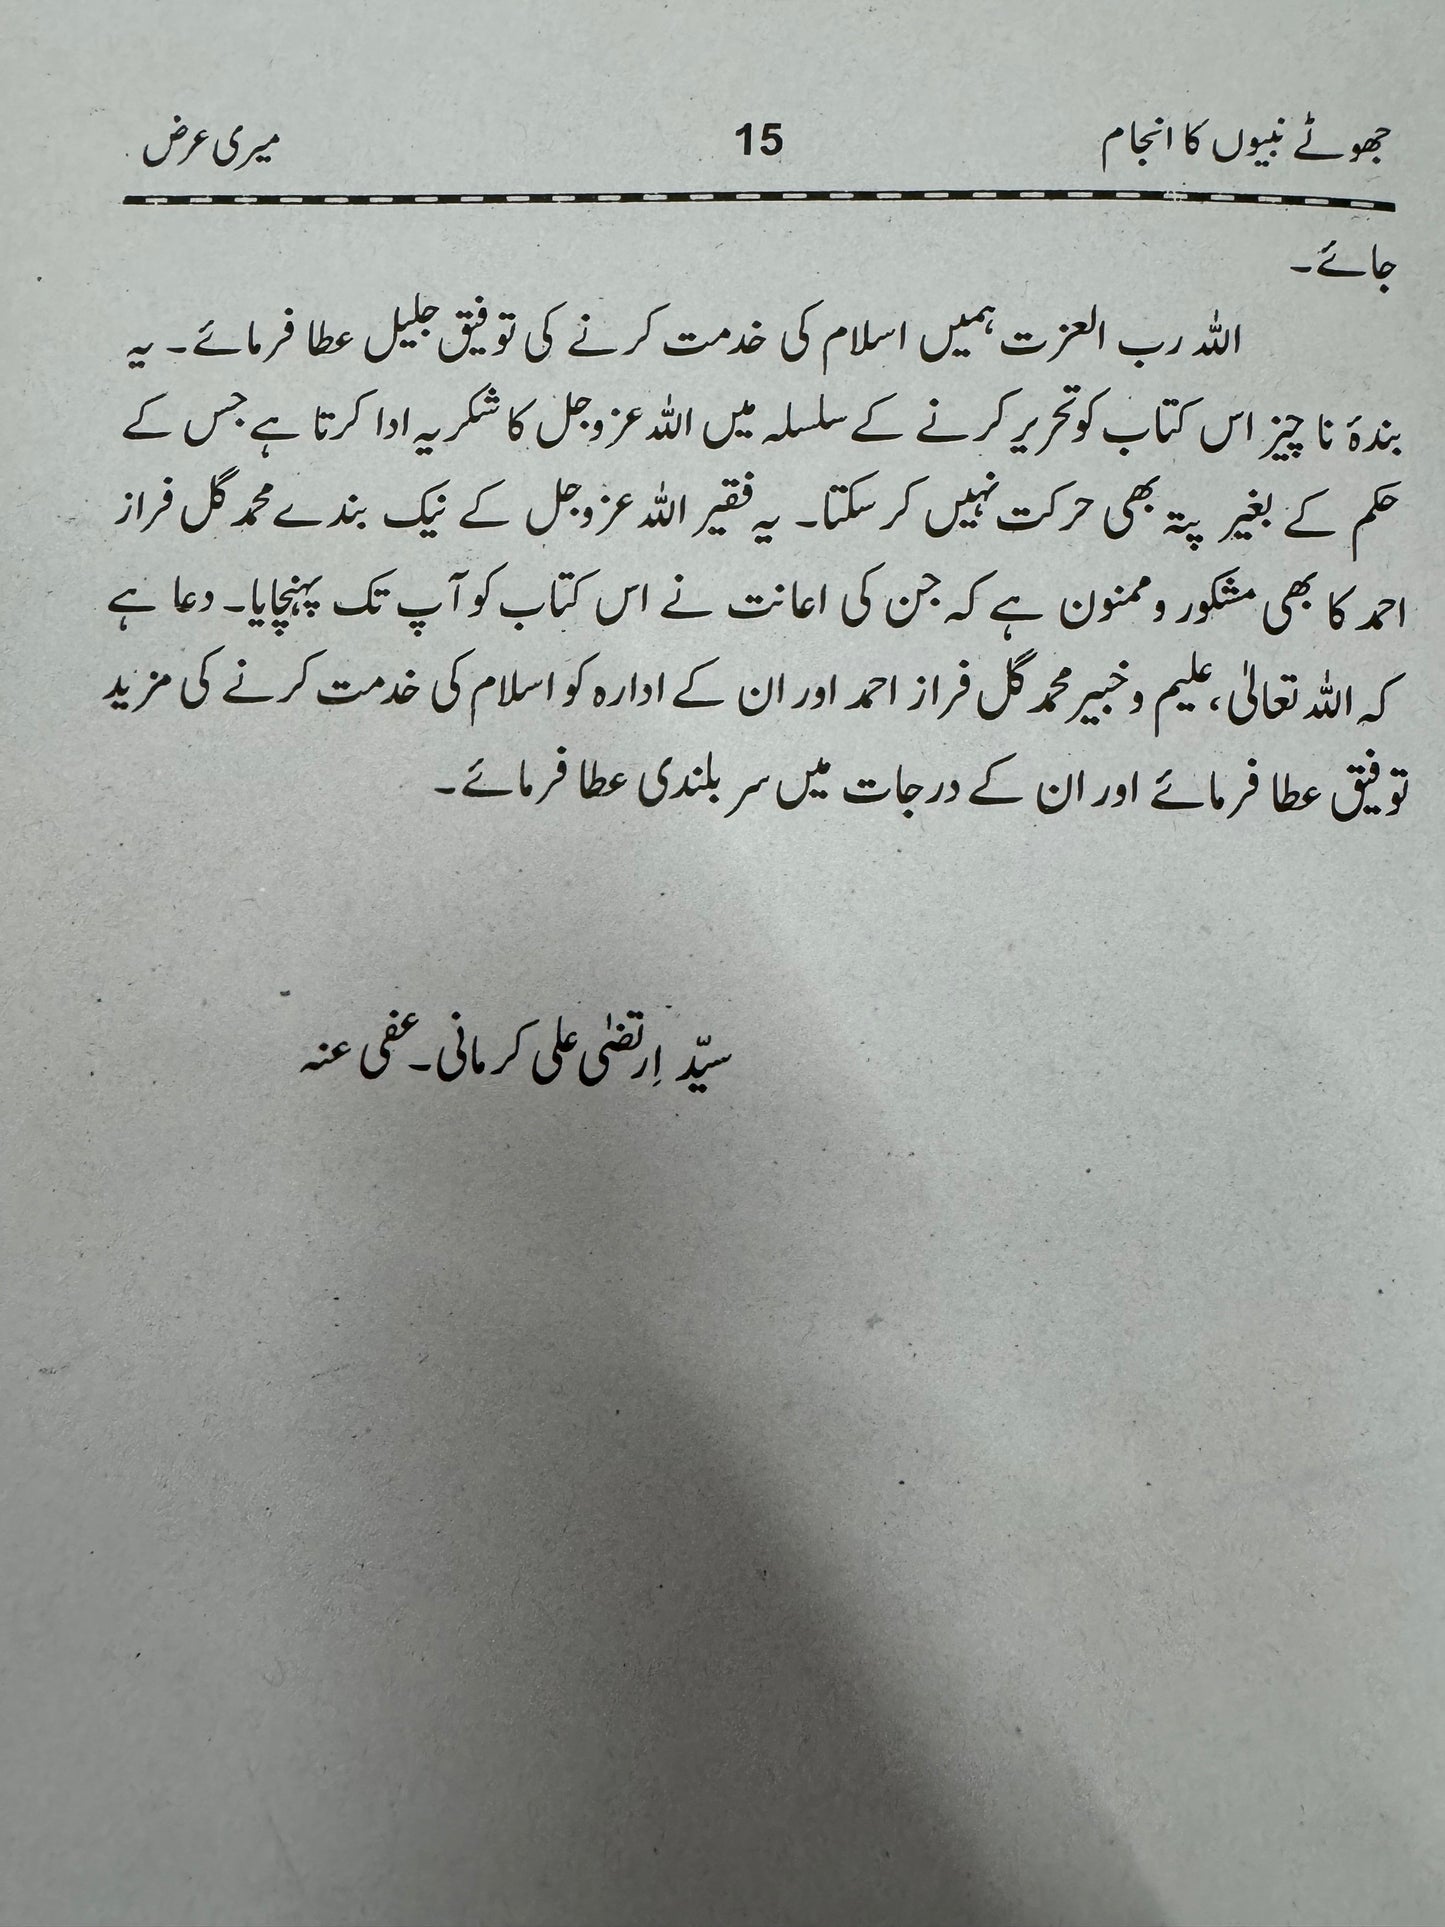 جھوٹے نبیوں کا انجام 15 میری عرض
جائے۔
اللہ رب العزت ہمیں اسلام کی خدمت کرنے کی توفیق جلیل عطا فرمائے۔ یہ
بندۂ نا چیز اس کتاب کو تحریر کرنے کے سلسلہ میں اللہ عزوجل کا شکریہ ادا کرتا ہے جس کے
حکم کے بغیر پتہ بھی حرکت نہیں کر سکتا۔ یہ فقیر اللہ عزوجل کے نیک بندے محمد گل فراز
احمد کا بھی مشکور و ممنون ہے کہ جن کی اعانت نے اس کتاب کو آپ تک پہنچایا۔ دعا ہے
کہ اللہ تعالیٰ، علیم و خبیر محمد گل فراز احمد اور ان کے ادارہ کو اسلام کی خدمت کرنے کی مزید
توفیق عطا فرمائے اور ان کے درجات میں سر بلندی عطا فرمائے۔
سیّد اِرتضٰی علی کرمانی۔ عفی عنہ